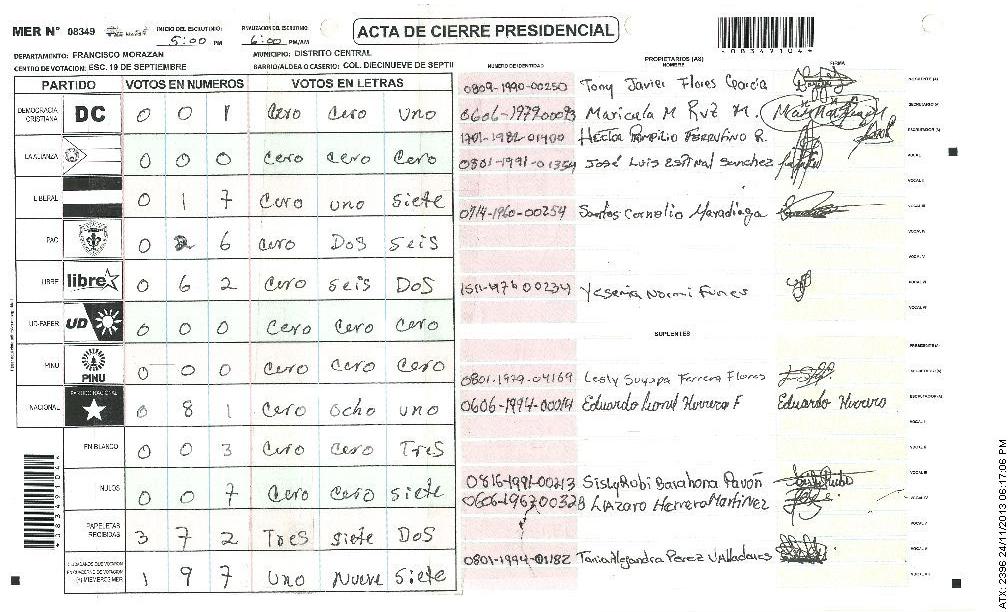 MER N° 08349 INICIO DEL ESCRUTINIO: 5:00 PM FINALIZACION DEL ESCRUTINIO: 6:00 PM/AM ACTA DE CIERRE PRESIDENCIAL
DEPARTAMENTO: FRANCISCO MORAZAN MUNICIPIO: DISTRITO CENTRAL
CENTRO DE VOTACION: ESC. 19 DE SEPTIEMBRE BARRIO/ALDEA O CASERIO: COL. DIECINUEVE DE SEPTI
PARTIDO VOTOS EN NUMEROS VOTOS EN LETRAS
DEMOCRACIA CRISTIANA DC 0 0 1 Cero Cero Uno
LA ALIANZA 0 0 0 Cero Cero Cero
LIBERAL 0 1 7 Cero uno Siete
PAC 0 2 6 Cero Dos Seis
LIBRE libre 0 6 2 Cero Seis Dos
UD-FAPER UD 0 0 0 Cero Cero Cero
PINU PINU 0 0 0 Cero Cero Cero
NACIONAL PARTIDO NACIONAL 0 8 1 Cero ocho uno
EN BLANCO 0 0 3 Cero Cero Tres
NULOS 0 0 7 Cero Cero siete
PAPELETAS RECIBIDAS 3 7 2 Tres siete Dos
1 9 7 Uno Nueve Siete
NUMERO DE IDENTIDAD PROPIETARIOS (AS) NOMBRE FIRMA
0809-1990-00250 Tony Javier Flores Garcia
0606-1979-00093 Maricela M Ruz M.
1701-1982-01400 Hector Pompilio Ferrufino R.
0801-1991-01354 José Luis Espinal Sanchez
0714-1960-00254 Santos Cornelio Maradiaga
1511-1976 00234 Yesenia Normi Funes
SUPLENTES
0801-1979-04169 Lesly Suyapa Ferrera Flores
0606-1994-00014 Eduardo Leonel Herrera F Eduardo Herrera
0816-1991-00213 Sisly Robi Barahona Pavón
0606-1967 00328 Lázaro Herrera Martinez
0801-1994-01182 Tania Alejandra Perez Valladares
ATX: 2396 24/11/2013 06:17:06 PM